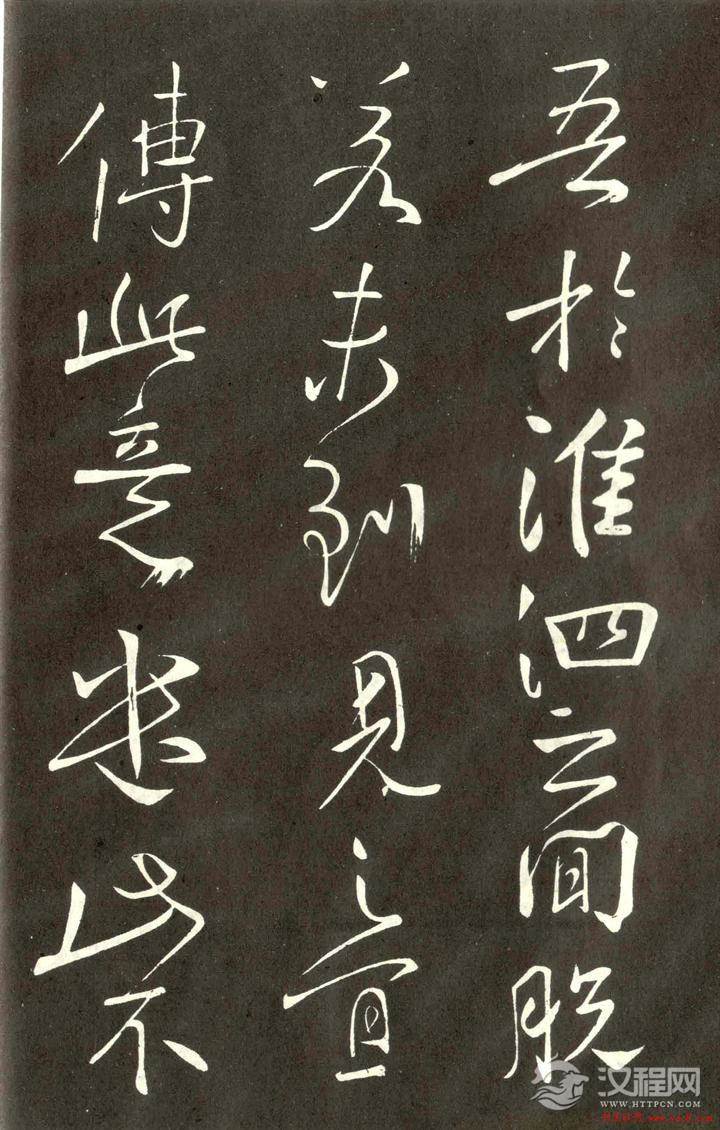 吾於淮泗之間脫
若未到見之宜
傳此意悉此不
汉程网
WWW.HTTPCN.COM